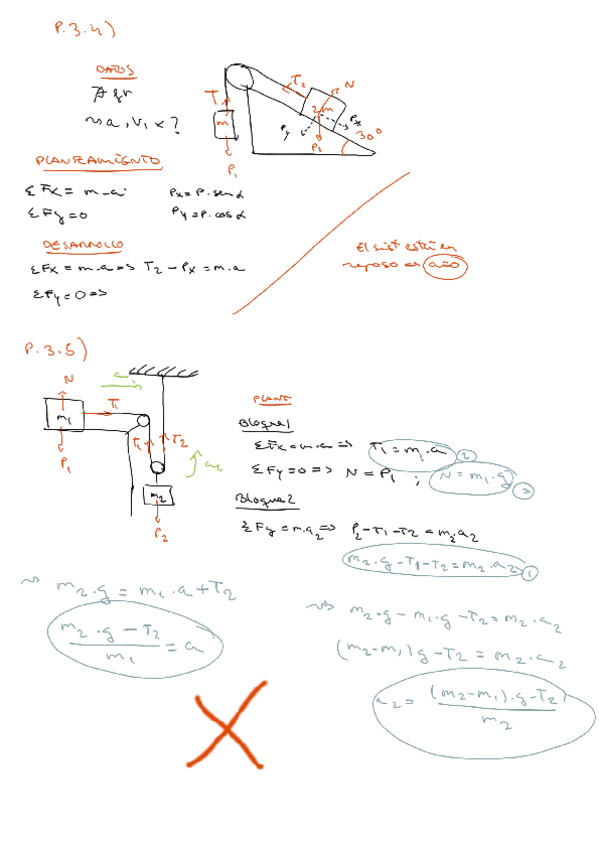 P.3.4)
DATOS
∄ fr
~> a, v, x ?
T
m
P₁
T₂
N
2m
Px
Py
P₂
30°
PLANTEAMIENTO
ΣFx = m·a
Px = P·senα
ΣFy = 0
Py = P·cosα
DESARROLLO
ΣFx = m·a => T₂ - Px = m·a
ΣFy = 0 =>
El sist está en
reposo en a=0
P.3.5)
N
a
m₁
T₁
P₁
T₁
T₂
a₂
m₂
P₂
PLANT
Bloque 1
ΣFx = m·a => T₁ = m₁·a ②
ΣFy = 0 => N = P₁ ; N = m₁·g ③
Bloque 2
ΣFy = m·a₂ => P₂ - T₁ - T₂ = m₂·a₂
m₂·g - T₁ - T₂ = m₂·a₂ ①
~> m₂·g = m₁·a + T₂
(m₂·g - T₂)/m₁ = a
~> m₂·g - m₁·g - T₂ = m₂·a₂
(m₂-m₁)g - T₂ = m₂·a₂
a₂ = ((m₂-m₁)·g - T₂)/m₂